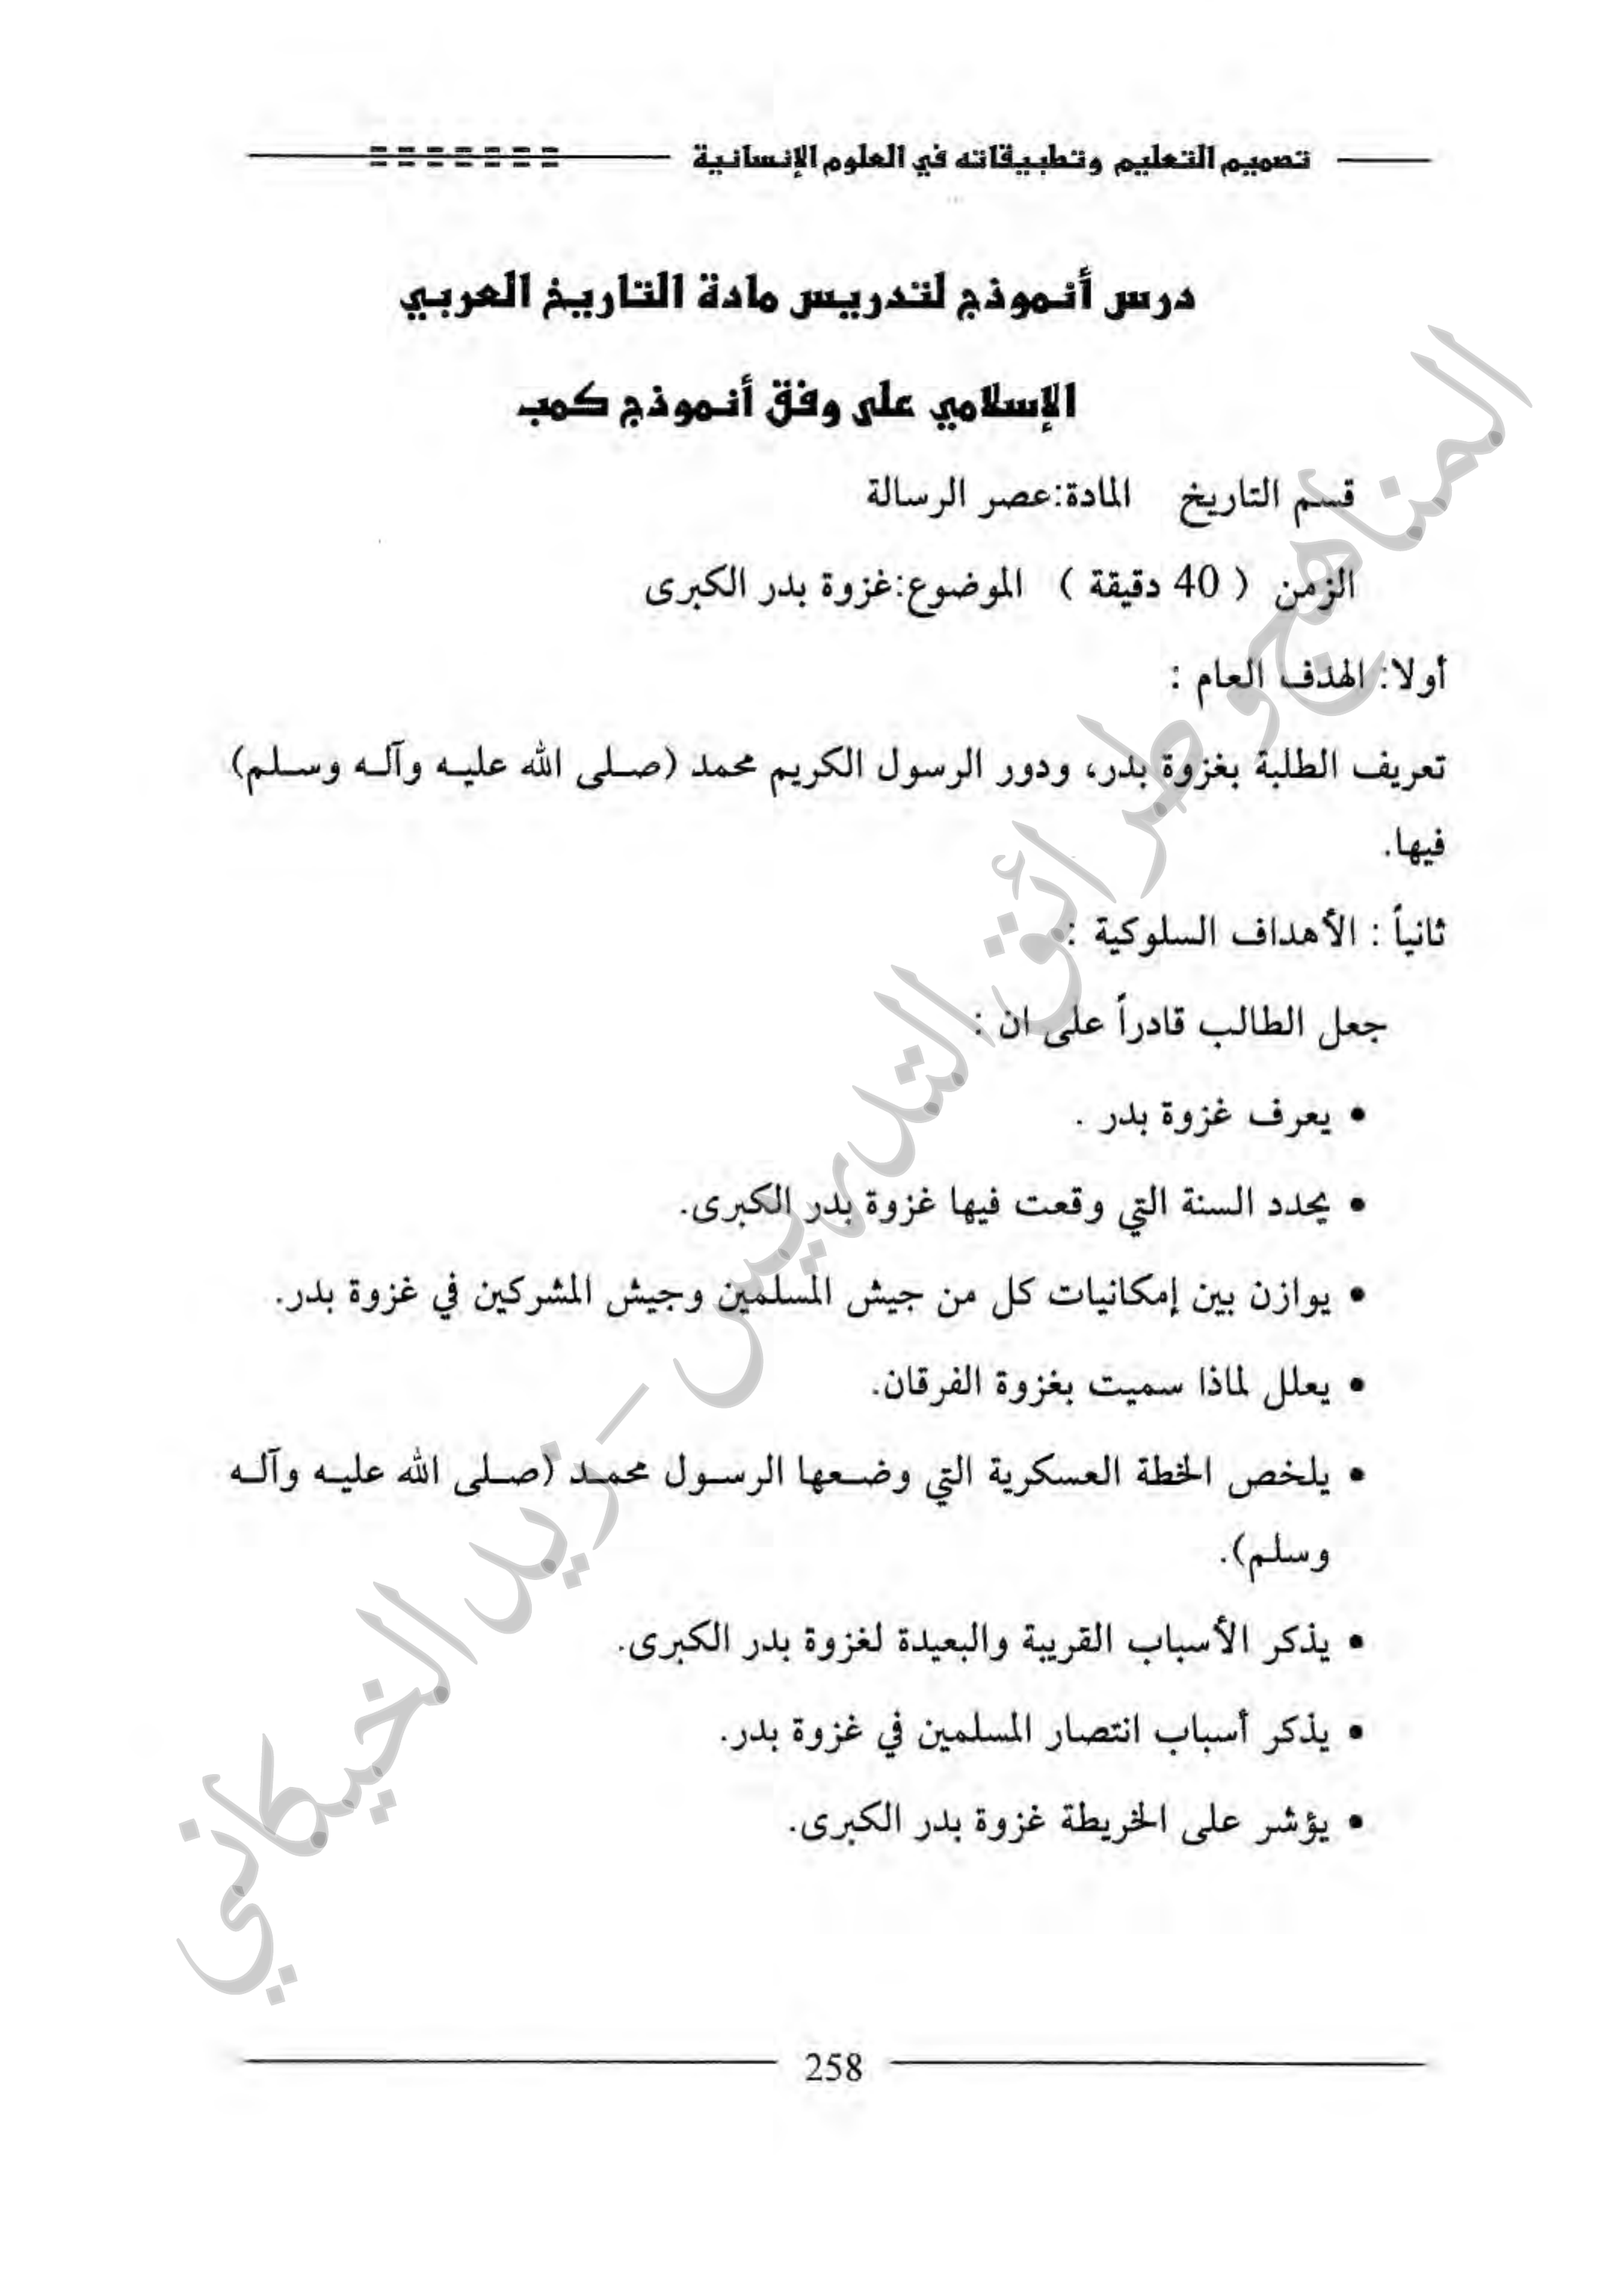 تصميم التعليم وتطبيقاته في العلوم الإنسانية
درس أنموذج لتدريس مادة التاريخ العربي
الإسلامي على وفق أنموذج كمب
قسم التاريخ المادة:عصر الرسالة
الزمن ( 40 دقيقة ) الموضوع:غزوة بدر الكبرى
أولا: الهدف العام :
تعريف الطلبة بغزوة بدر، ودور الرسول الكريم محمد (صلى الله عليه وآله وسلم)
فيها.
ثانياً : الأهداف السلوكية :
جعل الطالب قادراً على ان :
• يعرف غزوة بدر .
• يحدد السنة التي وقعت فيها غزوة بدر الكبرى.
• يوازن بين إمكانيات كل من جيش المسلمين وجيش المشركين في غزوة بدر.
• يعلل لماذا سميت بغزوة الفرقان.
• يلخص الخطة العسكرية التي وضعها الرسول محمد (صلى الله عليه وآله
وسلم).
• يذكر الأسباب القريبة والبعيدة لغزوة بدر الكبرى.
• يذكر أسباب انتصار المسلمين في غزوة بدر.
• يؤشر على الخريطة غزوة بدر الكبرى.
258
المناهج وطرائق التدريس - زيد الخيكاني